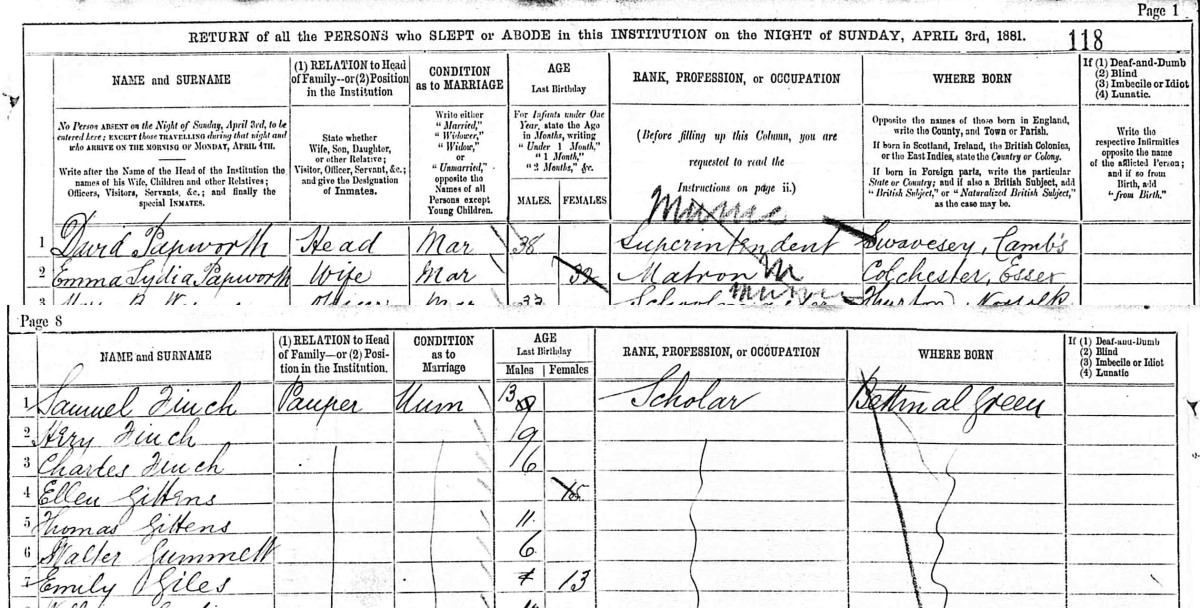 Page 1
RETURN of all the PERSONS who SLEPT or ABODE in this INSTITUTION on the NIGHT of SUNDAY, APRIL 3rd, 1881.
118
NAME and SURNAME
No Person ABSENT on the Night of Sunday, April 3rd, to be
entered here; EXCEPT those TRAVELLING during that night and
who ARRIVE ON THE MORNING OF MONDAY, APRIL 4TH.
Write after the Name of the Head of the Institution the
names of his Wife, Children and other Relatives;
Officers, Visitors, Servants, &c.; and finally the
special INMATES.
(1) RELATION to Head
of Family--or (2) Position
in the Institution
State whether
Wife, Son, Daughter,
or other Relative;
Visitor, Officer, Servant, &c.;
and give the Designation
of Inmates.
CONDITION
as to MARRIAGE
Write either
"Married,"
"Widower,"
"Widow,"
or
"Unmarried,"
opposite the
Names of all
Persons except
Young Children.
AGE
Last Birthday
For Infants under One
Year, state the Age
in Months, writing
"Under 1 Month,"
"1 Month,"
"2 Months," &c.
MALES. FEMALES
RANK, PROFESSION, or OCCUPATION
(Before filling up this Column, you are
requested to read the
Instructions on page ii.)
WHERE BORN
Opposite the names of those born in England,
write the County, and Town or Parish.
If born in Scotland, Ireland, the British Colonies,
or the East Indies, state the Country or Colony.
If born in Foreign parts, write the particular
State or Country; and if also a British Subject, add
"British Subject," or "Naturalized British Subject,"
as the case may be.
If (1) Deaf-and-Dumb
(2) Blind
(3) Imbecile or Idiot
(4) Lunatic.
Write the
respective Infirmities
opposite the name
of the afflicted Person;
and if so from
Birth, add
"from Birth."
1 David Papworth Head Mar 38 Superintendent Swavesey, Cambs
2 Emma Lydia Papworth Wife Mar 32 Matron Colchester, Essex
3
Page 8
NAME and SURNAME
(1) RELATION to Head
of Family—or (2) Posi-
tion in the Institution.
CONDITION
as to
Marriage
AGE
Last Birthday
Males Females
RANK, PROFESSION, or OCCUPATION
WHERE BORN
If (1) Deaf-and-Dumb
(2) Blind
(3) Imbecile or Idiot
(4) Lunatic
1 Samuel Finch Pauper Unm 13 Scholar Bethnal Green
2 Finch 9
3 Charles Finch 6
4 Ellen Gittens 15
5 Thomas Gittens 11
6 Walter Gummett 6
7 Emily Giles 13